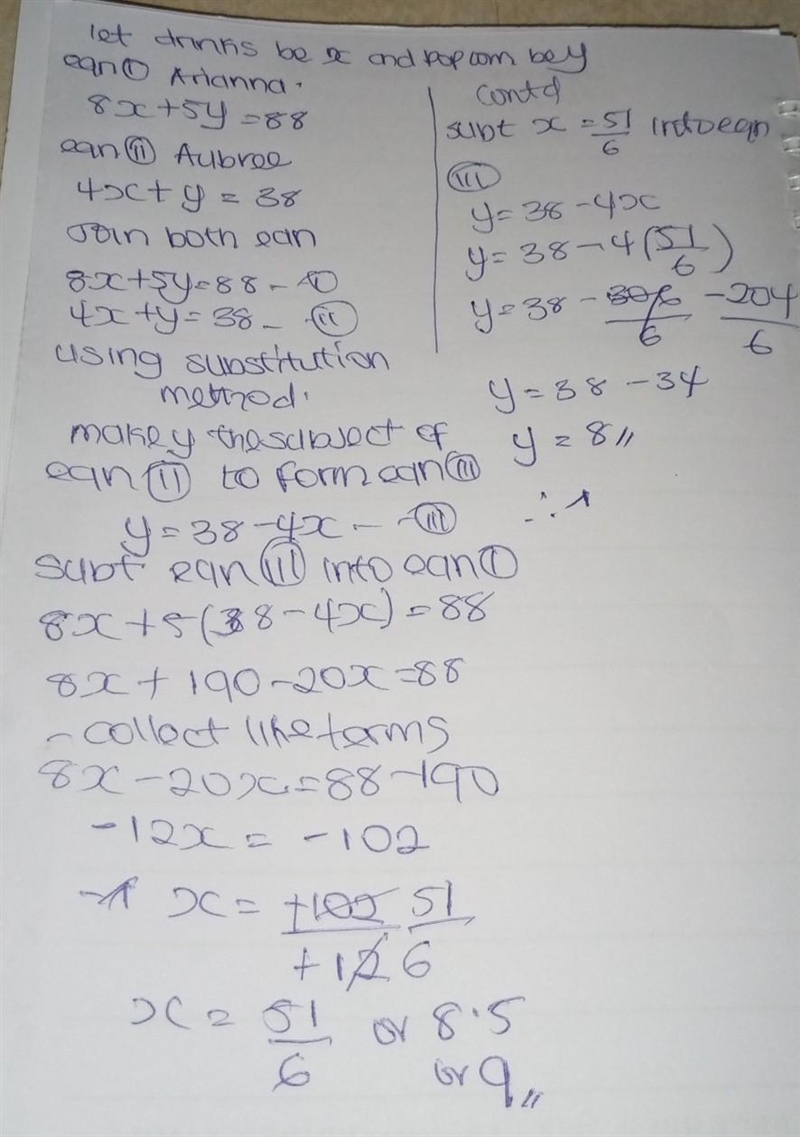 let drinks be x and popcorn be y
eqn (I) Arianna.
8x+5y=88
eqn (II) Aubree
4x+y=38
Join both eqn
8x+5y=88 - (I)
4x+y=38 - (II)
using substitution
method.
make y the subject of
eqn (II) to form eqn (III)
y=38-4x - - (III)
subt eqn (III) into eqn (I)
8x+5(38-4x)=88
8x+190-20x=88
- collect like terms
8x-20x=88-190
-12x = -102
x = +102/+12 51/6
x = 51/6 or 8.5
or 9,,
contd
subt x = 51/6 into eqn
(III)
y=38-4x
y=38-4(51/6)
y=38 - /6 -204/6
y=38-34
y=8,,
∴